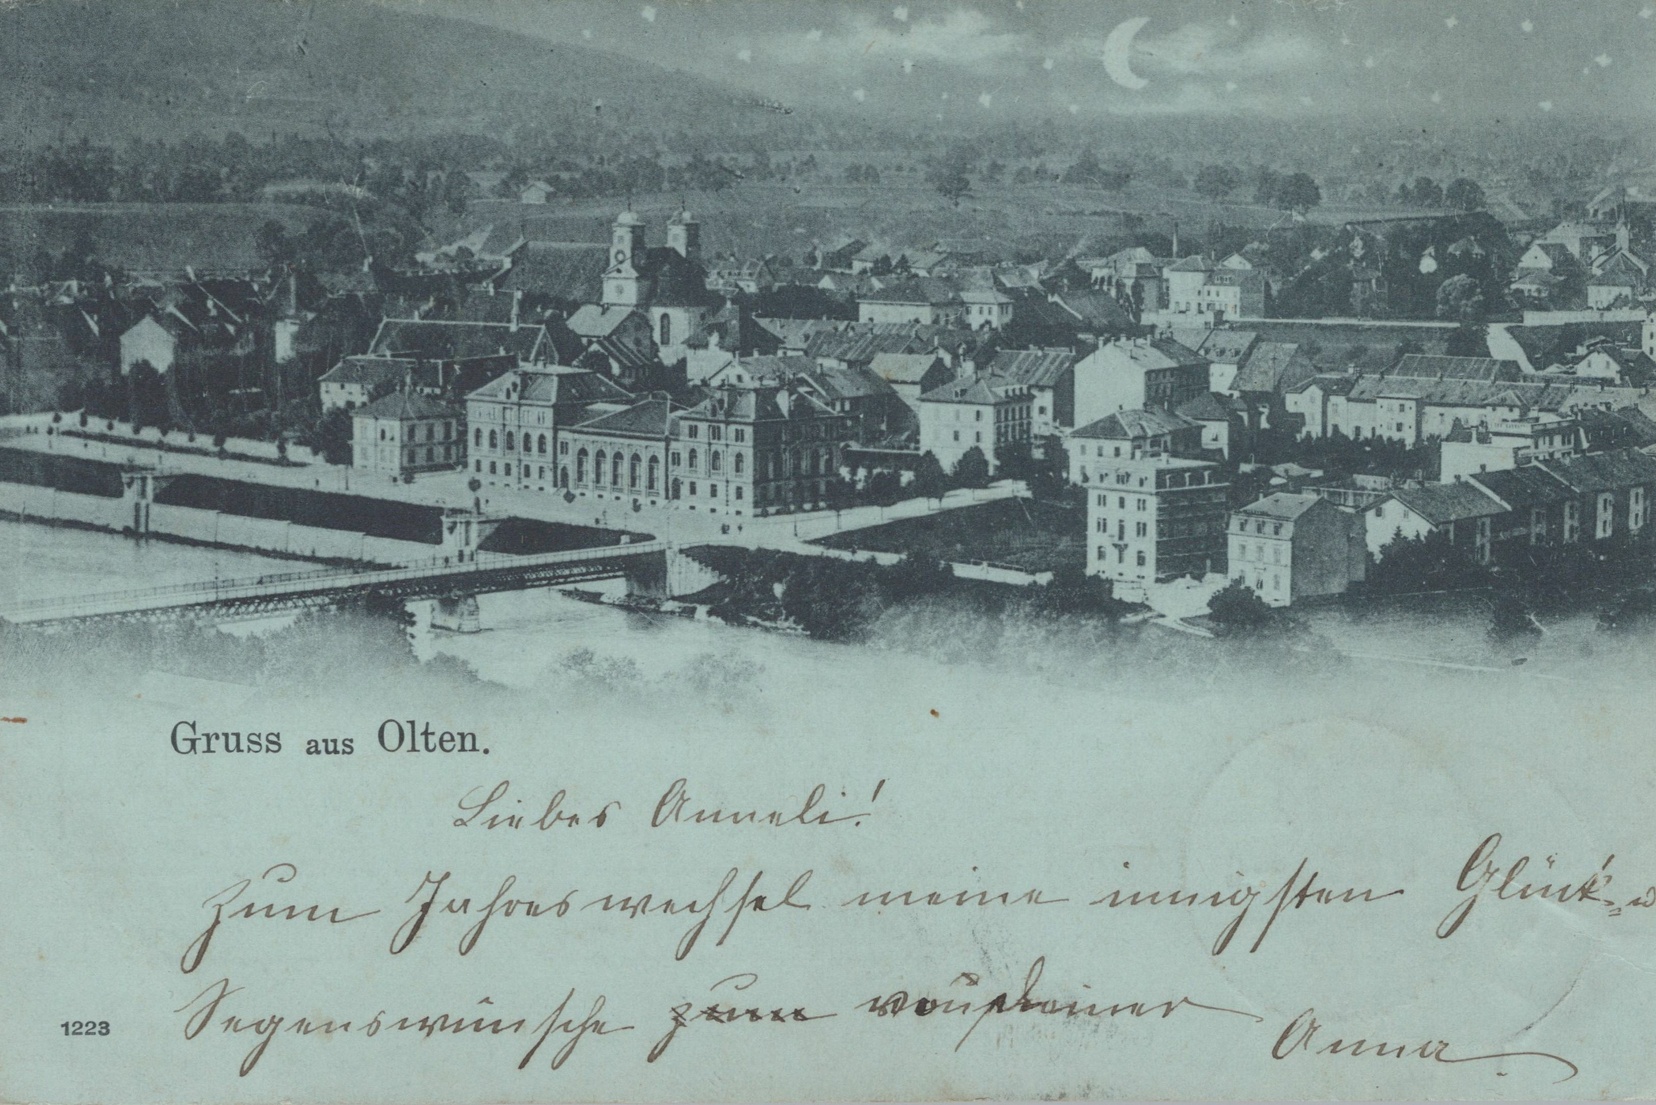 Gruss aus Olten.
Liebes Anneli!
Zum Jahreswechsel meine innigsten Glück- u
Segenswünsche zum von deiner
Anna
1223